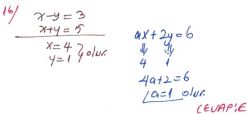 16/ x-y=3
x+y=5
x=4 } olur.
y=1
ax+2y=6
4 1
4a+2=6
a=1 olur.
CEVAP:E